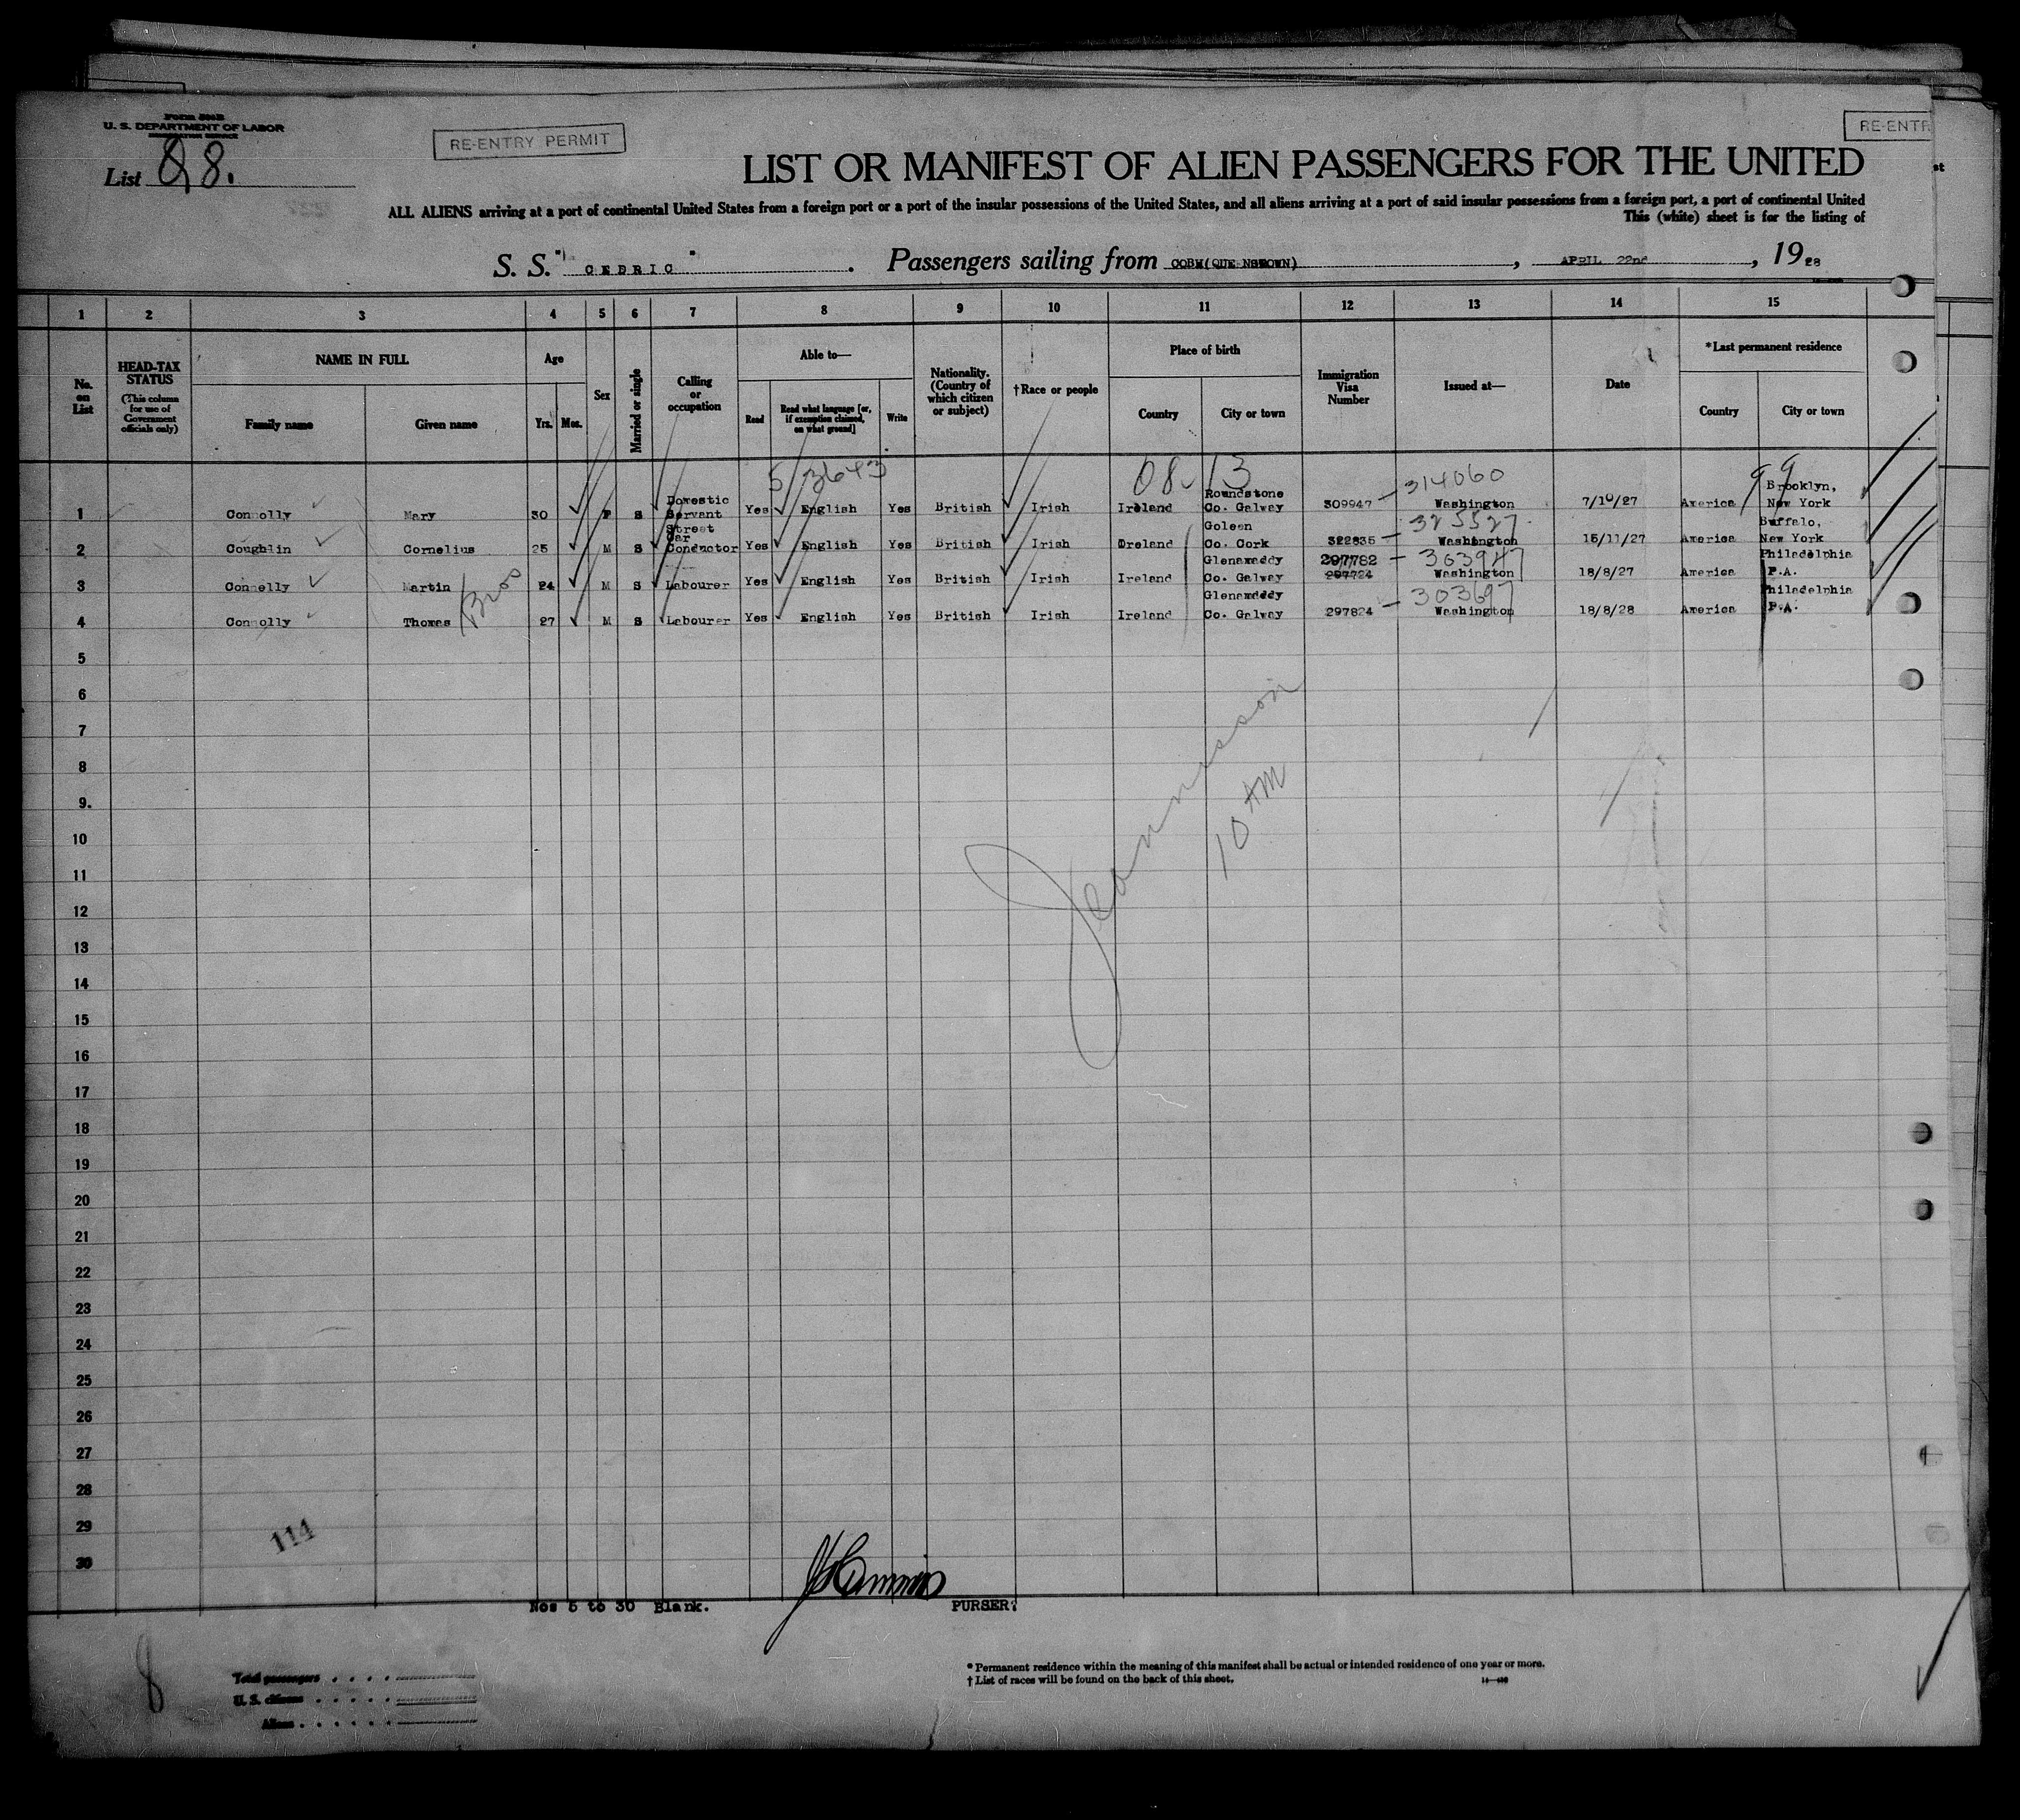 Form 500B
U. S. DEPARTMENT OF LABOR
IMMIGRATION SERVICE
List 8.
RE-ENTRY PERMIT
RE-ENTR
LIST OR MANIFEST OF ALIEN PASSENGERS FOR THE UNITED
ALL ALIENS arriving at a port of continental United States from a foreign port or a port of the insular possessions of the United States, and all aliens arriving at a port of said insular possessions from a foreign port, a port of continental United
This (white) sheet is for the listing of
S. S. " CEDRIC " . Passengers sailing from COBH(QUE NSTOWN) , APRIL 22nd , 19 28
1 2 3 4 5 6 7 8 9 10 11 12 13 14 15
No. on List
HEAD-TAX STATUS
(This column for use of Government officials only)
NAME IN FULL
Family name Given name
Age
Yrs. Mos.
Sex
Married or single
Calling or occupation
Able to—
Read
Read what language [or, if exemption claimed, on what ground]
Write
Nationality. (Country of which citizen or subject)
†Race or people
Place of birth
Country City or town
Immigration Visa Number
Issued at—
Date
*Last permanent residence
Country City or town
5/3643 08 13 314060 99
1 Connolly Mary 30 F S Domestic Servant Yes English Yes British Irish Ireland Roundstone Co. Galway 309947 — Washington 7/10/27 America Brooklyn, New York
325527
2 Coughlin Cornelius 25 M S Street Car Conductor Yes English Yes British Irish Oreland Goleen Co. Cork 322835 — Washington 15/11/27 America Buffalo, New York
297782 — 303947
3 Connelly Martin 24 M S Labourer Yes English Yes British Irish Ireland Glenamaddy Co. Galway 297724 Washington 18/8/27 America Philadelphia P.A.
Bros
303697
4 Connolly Thomas 27 M S Labourer Yes English Yes British Irish Ireland Glenamaddy Co. Galway 297824 — Washington 18/8/28 America Philadelphia P.A.
5
6
7
8
9.
10
11
12
13
14
15
16
17
18
19
20
21
22
23
24
25
26
27
28
29
30
10 AM
114
Nos 5 to 30 Blank.
PURSER.
8
Total passengers
U. S. citizens
Aliens
* Permanent residence within the meaning of this manifest shall be actual or intended residence of one year or more.
† List of races will be found on the back of this sheet.